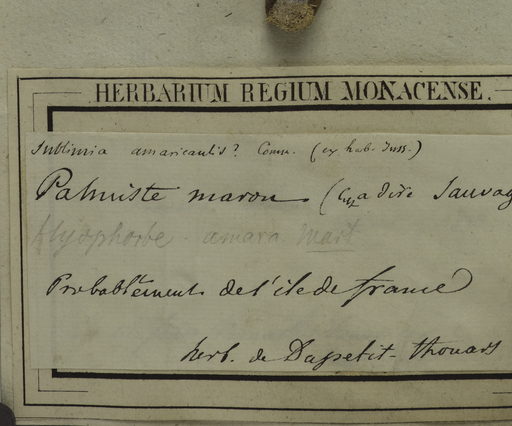 HERBARIUM REGIUM MONACENSE.
Sublimia amaricaulis? Comm. (ex herb. Juss.)
Palmiste maron (c'est a dire Sauvag
Hyophorbe amara Mart
Probablement de l'ile de france
herb. de Dupetit-thouars